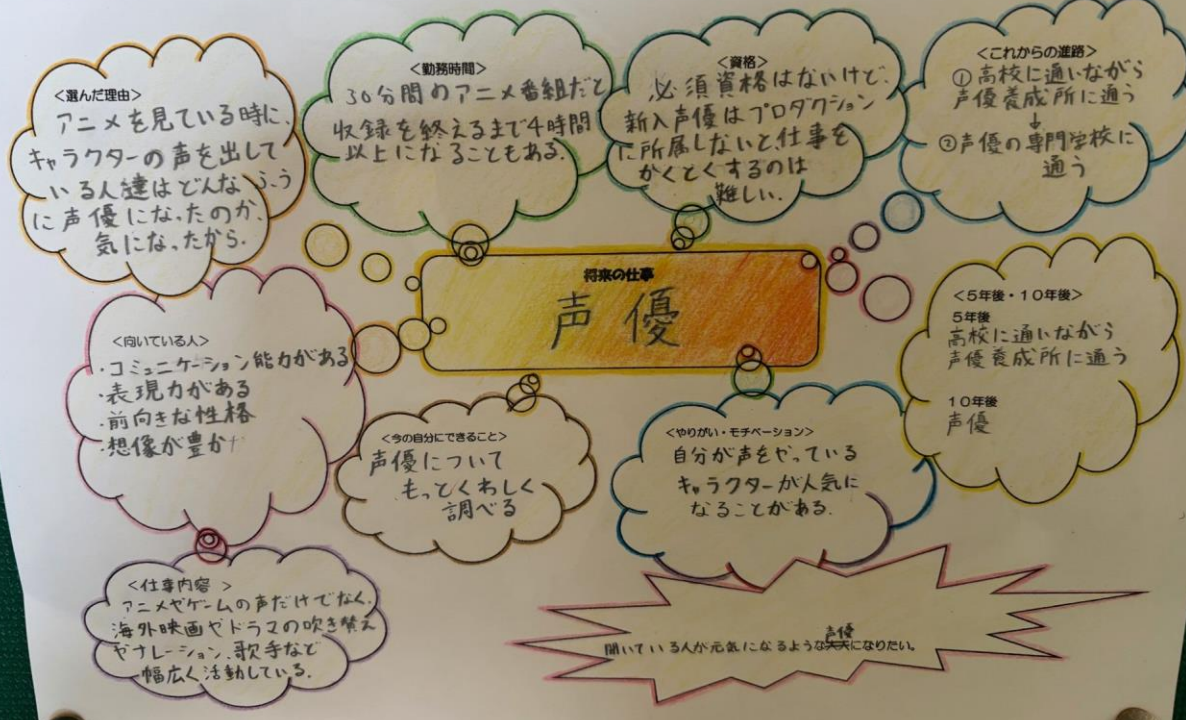 <選んだ理由>
アニメを見ている時に、
キャラクターの声を出して
いる人達はどんなふう
に声優になったのか、
気になったから.
<勤務時間>
30分間のアニメ番組だと
収録を終えるまで4時間
以上になることもある.
<資格>
必須資格はないけど、
新人声優はプロダクション
に所属しないと、仕事を
かくとくするのは
難しい.
<これからの進路>
①高校に通いながら
声優養成所に通う
↓
②声優の専門学校に
通う
将来の仕事
声優
<向いている人>
・コミュニケーション能力がある
・表現力がある
・前向きな性格
・想像が豊か
<今の自分にできること>
声優について
もっとくわしく
調べる
<やりがい・モチベーション>
自分が声をやっている
キャラクターが人気に
なることがある.
<5年後・10年後>
5年後
高校に通いながら
声優養成所に通う
10年後
声優
<仕事内容 >
アニメやゲームの声だけでなく、
海外映画やドラマの吹き替え
やナレーション、歌手など
幅広く活動している.
声優
聞いている人が元気になるような大人になりたい。